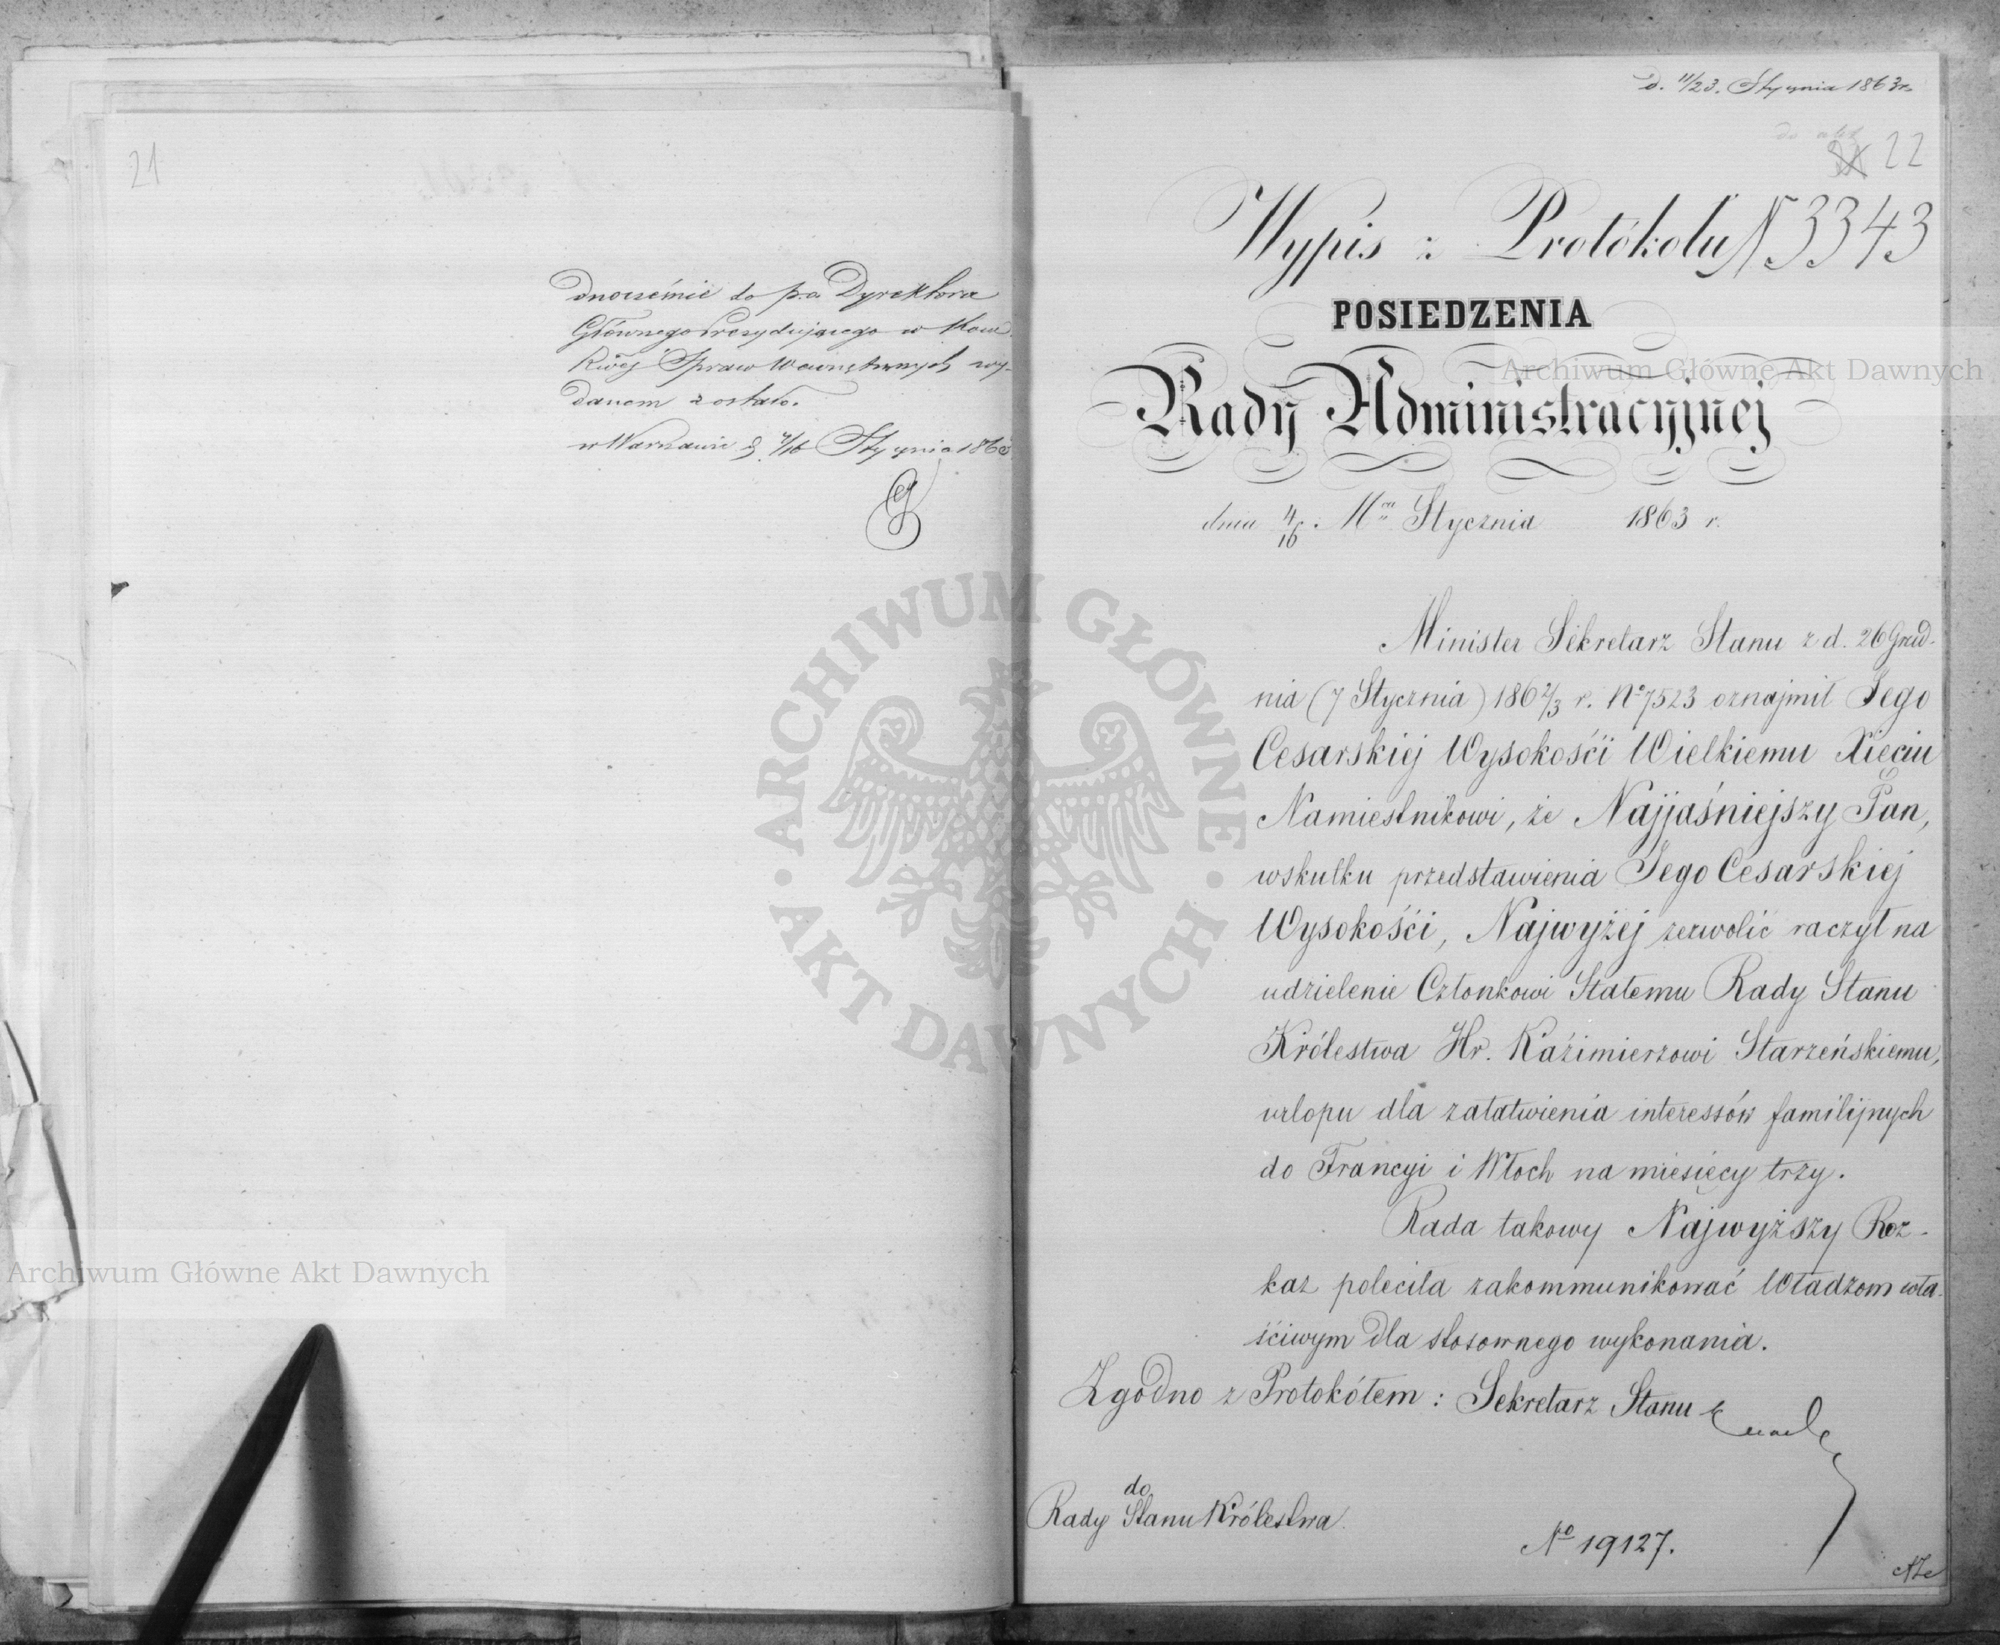 21
dnocześnie do p.o. Dyrektora
Głównego Prezydującego w Kom.
Rwej Spraw Wewnętrznych wy-
danem zostało.
w Warszawie d. 4/16 Stycznia 1863
D. 11/23. Stycznia 1863 r.
do akt
22
Wypis z Protókołu N 3343
POSIEDZENIA
Rady Administracyjnej
dnia 4/16 Mca Stycznia 1863 r.
Minister Sekretarz Stanu z d. 26 Grud-
nia (7 Stycznia) 1862/3 r. No 7523 oznajmił Jego
Cesarskiej Wysokości Wielkiemu Xięciu
Namiestnikowi, że Najjaśniejszy Pan,
wskutku przedstawienia Jego Cesarskiej
Wysokości, Najwyżej zezwolić raczył na
udzielenie Członkowi Stałemu Rady Stanu
Królestwa Hr. Kaźimierzowi Starzeńskiemu,
urlopu dla załatwienia interessów familijnych
do Francyi i Włoch na miesięcy trzy.
Rada takowy Najwyższy Roz-
kaz poleciła zakommunikować Władzom wła-
ściwym dla stosownego wykonania.
Zgodno z Protokółem: Sekretarz Stanu
do
Rady Stanu Królestwa.
No 19127.
Archiwum Główne Akt Dawnych
Archiwum Główne Akt Dawnych
ARCHIWUM GŁÓWNE AKT DAWNYCH